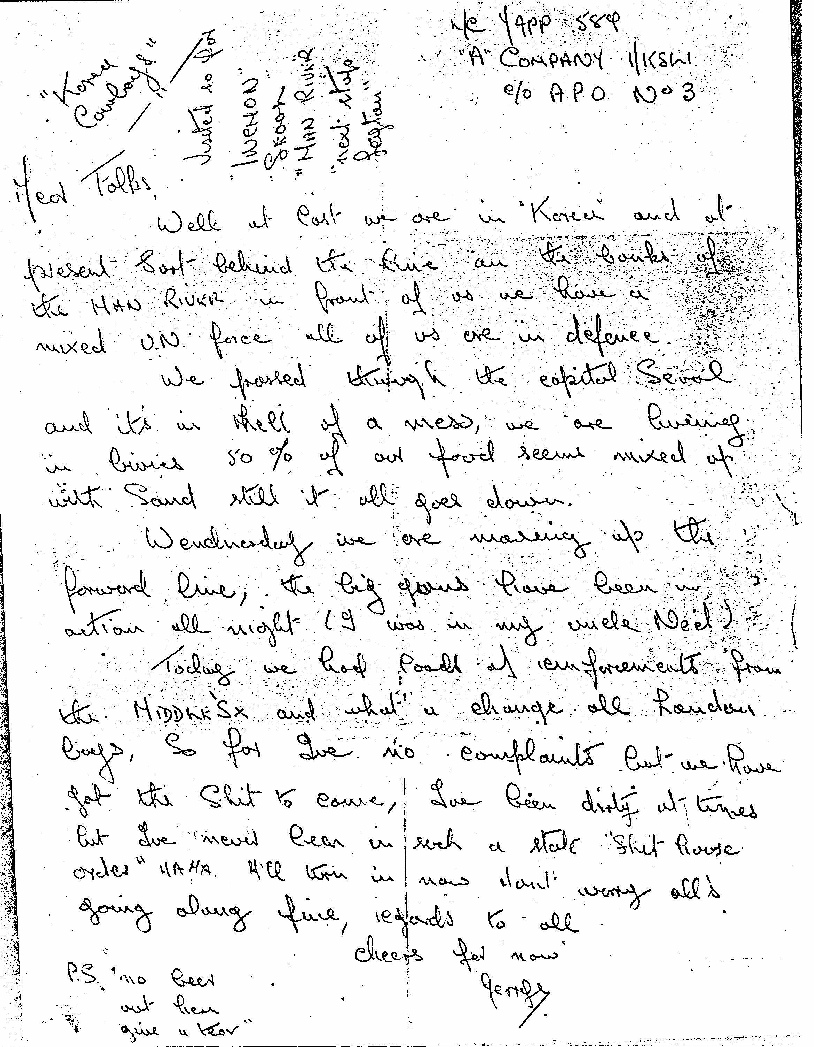 "A" COMPANY 1/KSLI
c/o A.P.O No 3
"Korea
Cowboys"
Visited so far
"INCHON"
"HAN RIVER"
"next stop
Dear Folks,
Well at last we are in "Korea" and at
present Sort behind the line on the banks of
the HAN RIVER in front of us we have a
mixed U.N. force all of us are in defence.
We passed through the capital Seoul
and it's in hell of a mess, we are liveing
in bivies 50 % of our food seems mixed up
with Sand still it all goes down.
Wendnesday we are moveing up the
forward line, the big guns have been in
action all night (I was in my uncle Ned!)
Today we had loads of reinforcements from
the MIDDLE'SX and what a change all London
boys, So far I've no complaints but we have
got the Shit to come, I've been dirty at times
but I've never been in such a state "Shit house
order" HAHA. I'll turn in now don't worry all's
going along fine, regards to all
cheers for now
P.S. "no beer
out here
give a